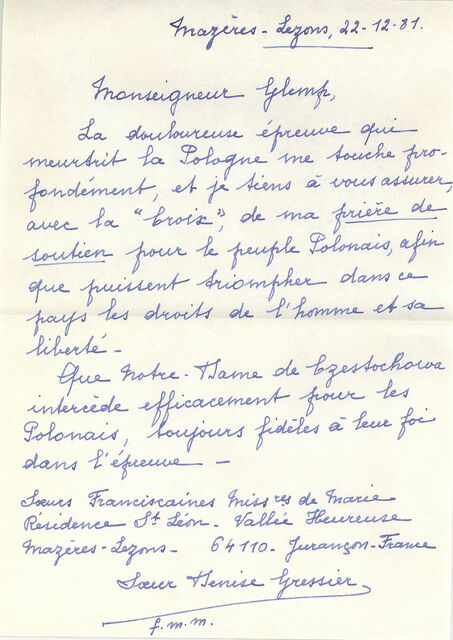 Mazères-Lezons, 22-12-81.
Monseigneur Glemp,
La douloureuse épreuve qui
meurtrit la Pologne me touche pro-
fondément, et je tiens à vous assurer,
avec la "Croix", de ma prière de
soutien pour le peuple Polonais, afin
que puissent triompher dans ce
pays les droits de l'homme et sa
liberté -
Que Notre-Dame de Czestochowa
intercède efficacement pour les
Polonais, toujours fidèles à leur foi
dans l'épreuve -
Sœurs Franciscaines Miss res de Marie
Résidence St Léon - Vallée Heureuse
Mazères-Lezons - 64110 - Jurançon - France
Sœur Denise Gressier
f.m.m.